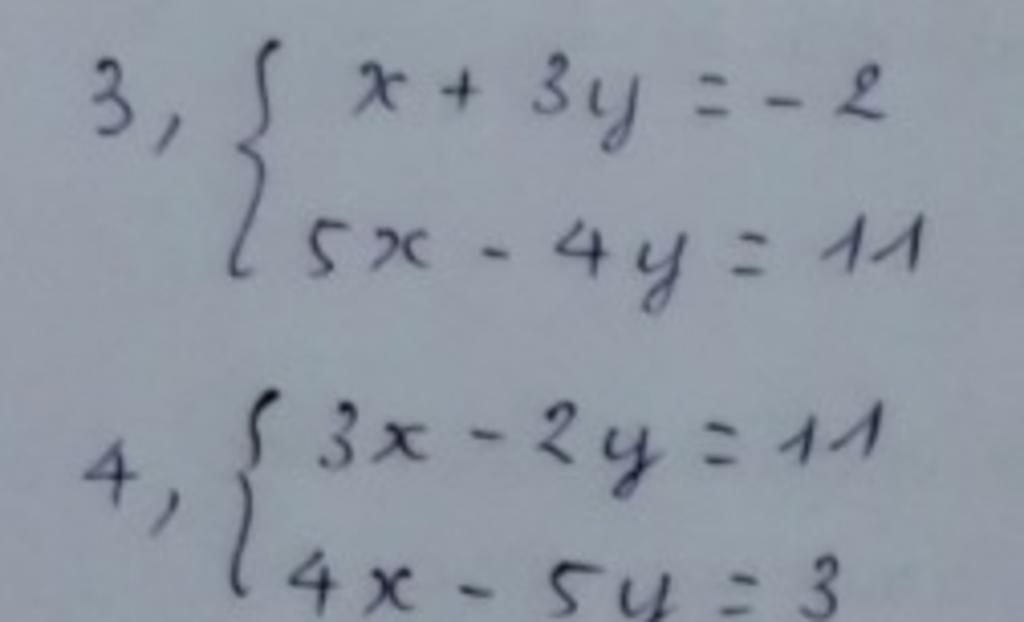 3, { x + 3y = - 2
5x - 4y = 11
4, { 3x - 2y = 11
4x - 5y = 3